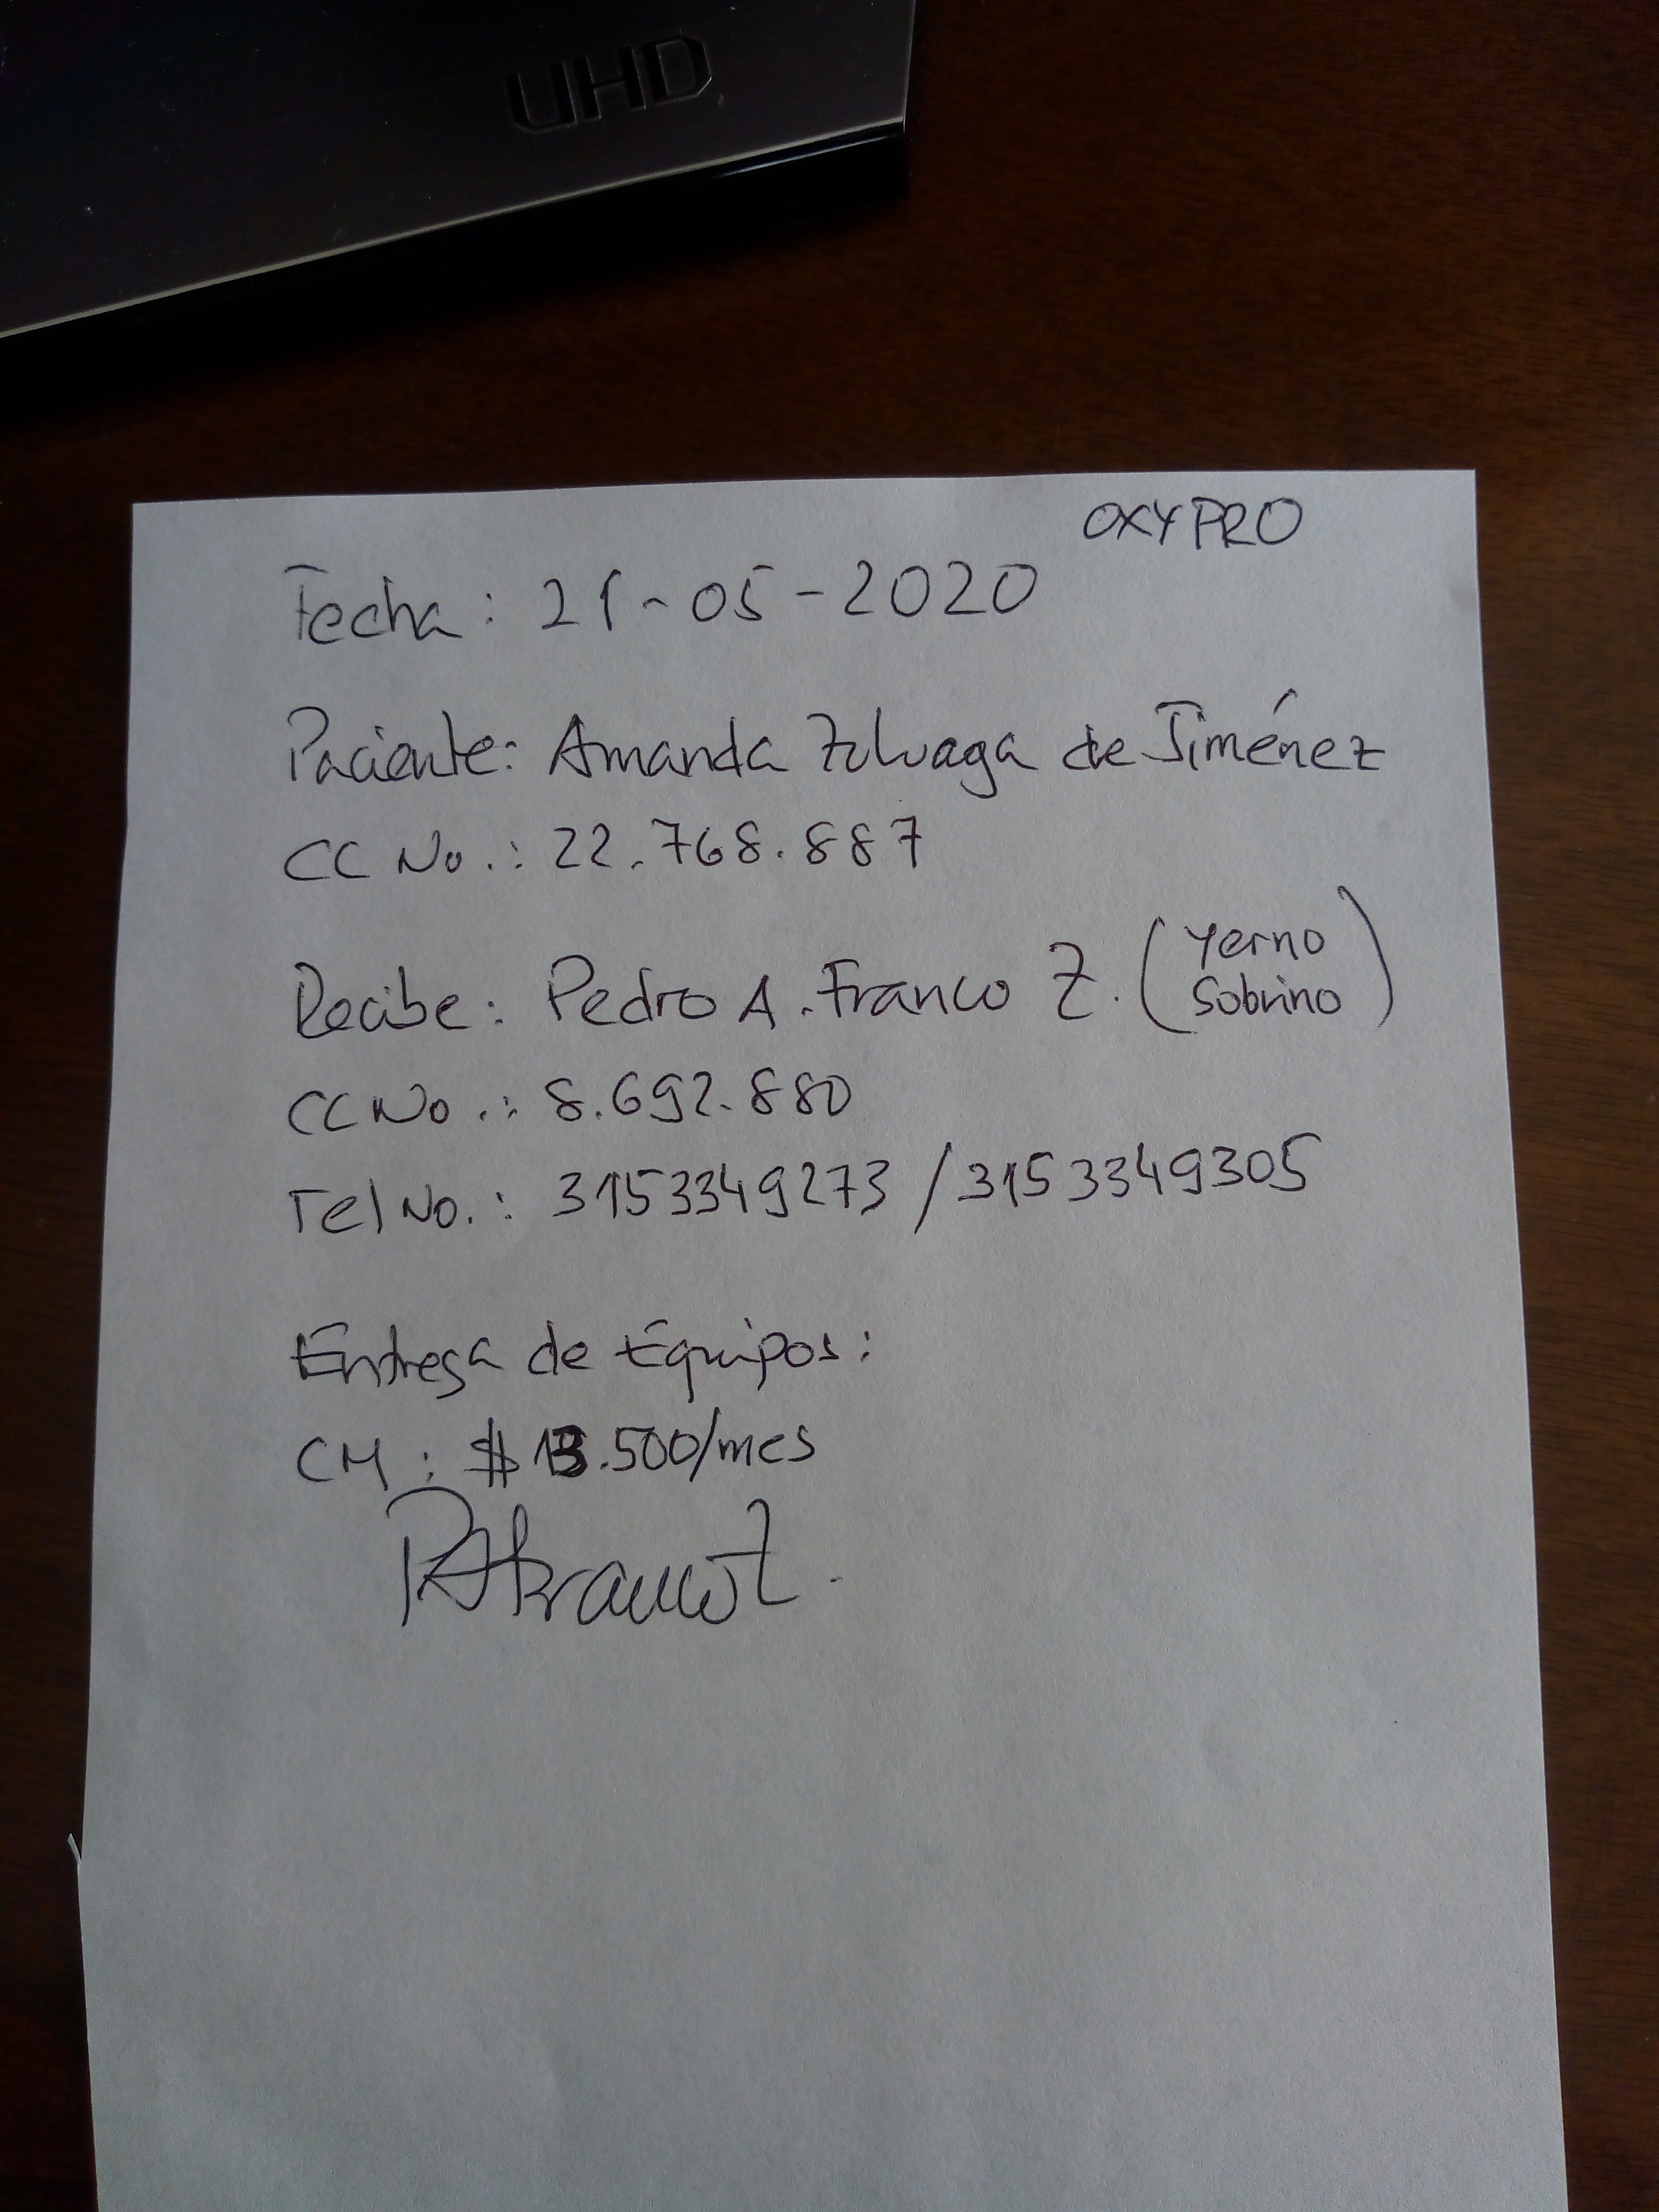 UHD
OXYPRO
Fecha: 21-05-2020
Paciente: Amanda Zuluaga de Jiménez
CC No.: 22.768.887
Recibe: Pedro A. Franco Z. (Yerno
Sobrino)
CC No.: 8.692.880
Tel No.: 3153349273 / 3153349305
Entrega de Equipos:
CM: $13.500/mes
PAFrancoZ.